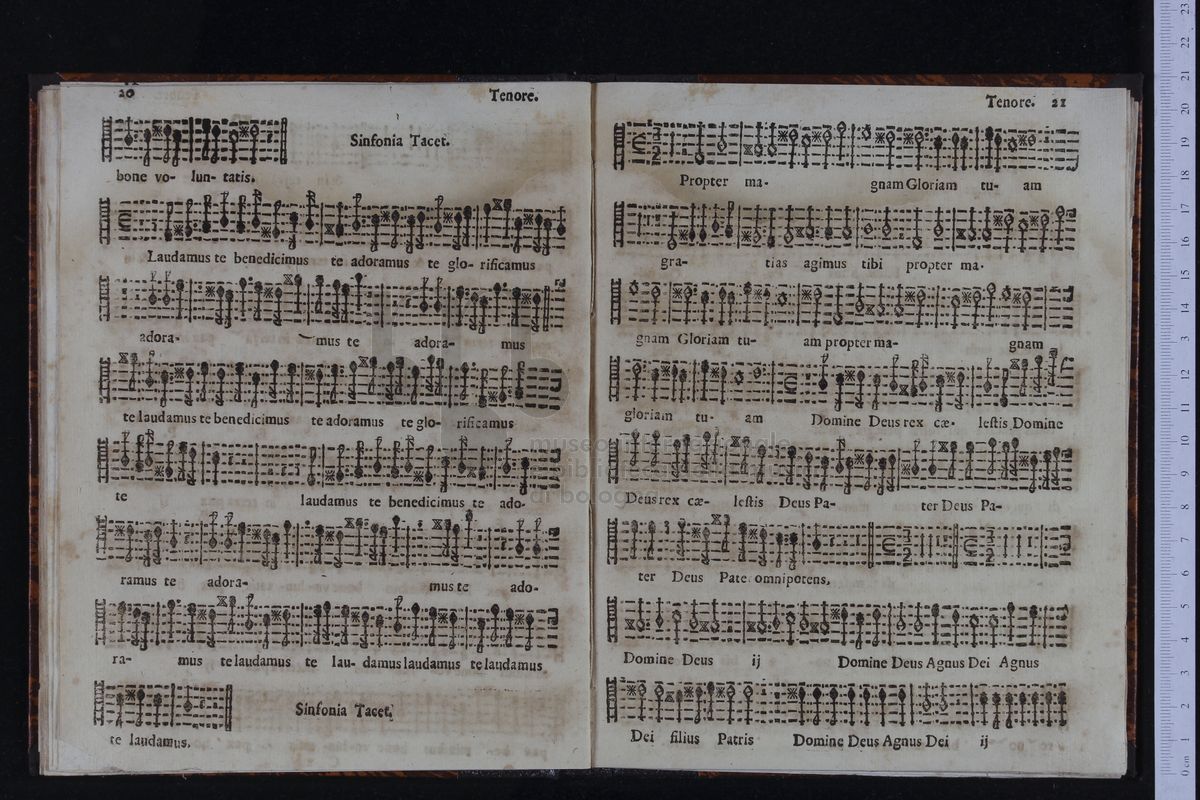 20 Tenore.
Sinfonia Tacet.
bone vo- lun- tatis.
Laudamus te benedicimus te adoramus te glo- rificamus
adora- mus te adora- mus
te laudamus te benedicimus te adoramus te glo- rificamus
te laudamus te benedicimus te ado-
ramus te adora- mus te ado-
ra- mus te laudamus te lau- damus laudamus te laudamus
Sinfonia Tacet.
te laudamus.
Tenore. 21
Propter ma- gnam Gloriam tu- am
gra- tias agimus tibi propter ma-
gnam Gloriam tu- am propter ma- gnam
gloriam tu- am Domine Deus rex cæ- lestis Domine
Deus rex cæ- lestis Deus Pa- ter Deus Pa-
ter Deus Pate omnipotens.
Domine Deus ij Domine Deus Agnus Dei Agnus
Dei filius Patris Domine Deus Agnus Dei ij
museo
bibli
di bologn